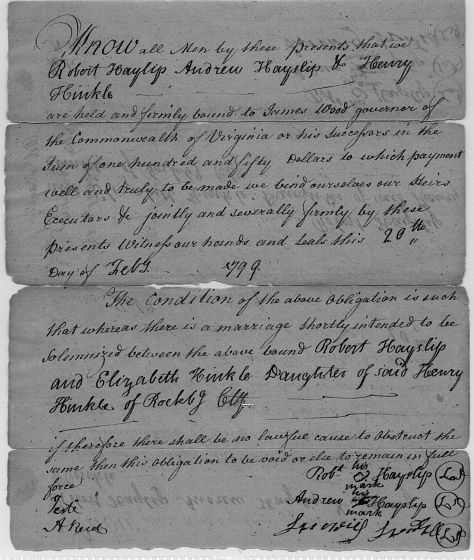 Know all Men by these Presents that we
Robert Hayslip Andrew Hayslip & Henry
Hinkle
are held and firmly bound to James Wood governor of
the Commonwealth of Virginia or his successors in the
Sum of one hundred and fifty Dollars to which payment
well and truly to be made we bind ourselves our Heirs
Executors &c jointly and severally firmly by these
Presents Witness our hands and seals this 20th
Day of Feby 1799.
The Condition of the above Obligation is such
that whereas there is a marriage shortly intended to be
Solemnized between the above bound Robert Hayslip
and Elizabeth Hinkle Daughter of said Henry
Hinkle of Rockbg Cty.
if therefore there shall be no lawful cause to Obstruct the
same then this Obligation to be void or else to remain in full
force
Robt his Hayslip LS
mark
Teste
Andrew his Hayslip LS
mark
A Reid
LS